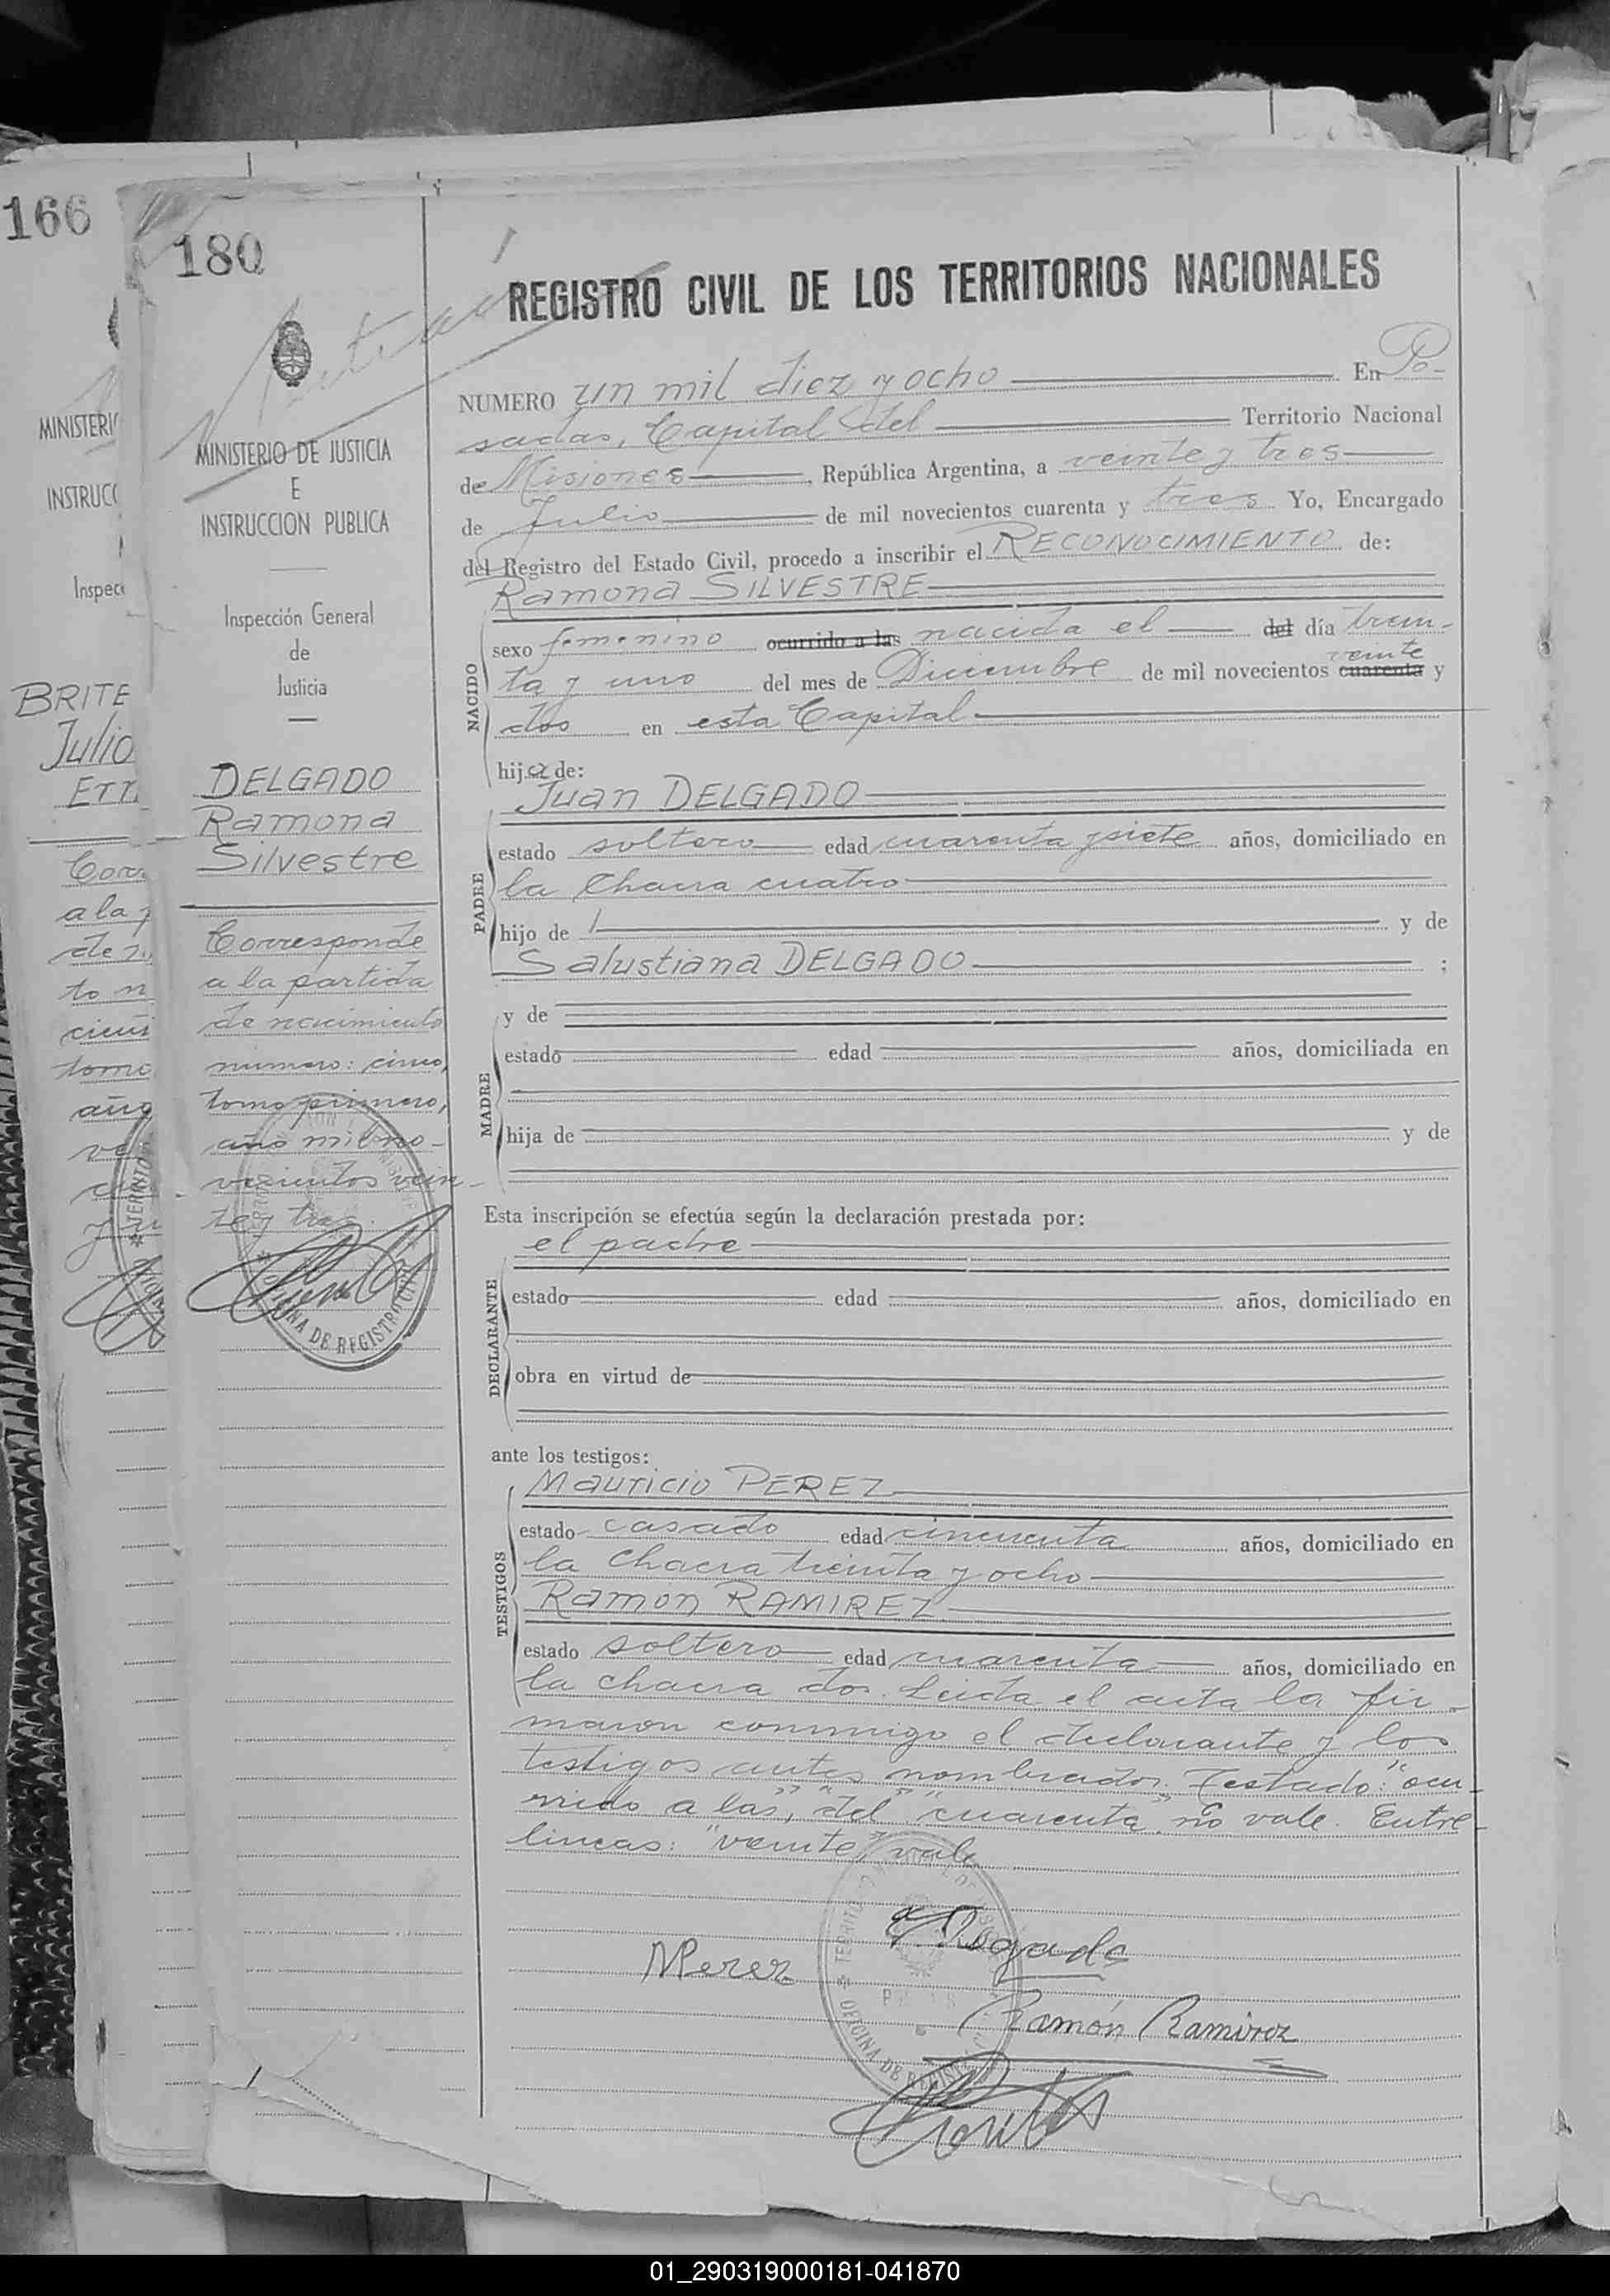 166
MINISTERI
INSTRUCC
Inspecc
BRITE
Julio
Corr
a la p
to n
tomo
año
180
MINISTERIO DE JUSTICIA
E
INSTRUCCION PUBLICA
Inspección General
de
Justicia
DELGADO
Ramona
Silvestre
Corresponde
a la partida
de nacimiento
numero: cinco,
tomo primero,
año mil no-
vecientos vein-
te y tres.
OFICINA DE REGISTRO CIVIL
REGISTRO CIVIL DE LOS TERRITORIOS NACIONALES
NUMERO un mil diez y ocho En Po-
sadas, Capital del Territorio Nacional
de Misiones, República Argentina, a veinte y tres
de Julio de mil novecientos cuarenta y tres Yo, Encargado
del Registro del Estado Civil, procedo a inscribir el RECONOCIMIENTO de:
Ramona SILVESTRE
NACIDO
sexo femenino ocurrido a las nacida el del día trein-
veinte
ta y uno del mes de Diciembre de mil novecientos cuarenta y
dos en esta Capital
hija de:
Juan DELGADO
PADRE
estado soltero edad cuarenta y siete años, domiciliado en
la Chacra cuatro
hijo de y de
Salustiana DELGADO ;
MADRE
y de
estado edad años, domiciliada en
hija de y de
Esta inscripción se efectúa según la declaración prestada por:
el padre
DECLARANTE
estado edad años, domiciliado en
obra en virtud de
ante los testigos:
Mauricio PEREZ
TESTIGOS
estado casado edad cincuenta años, domiciliado en
la Chacra treinta y ocho
Ramón RAMIREZ
estado soltero edad cuarenta años, domiciliado en
la chacra dos. Leida el acta la fir-
maron conmigo el declarante y los
testigos antes nombrados. Testado: "ocu-
rrido a las", "del" "cuarenta" no vale. Entre
lineas: "veinte", vale
MPerez
Ramón Ramirez
OFICINA DE REGISTRO CIVIL
01_290319000181-041870